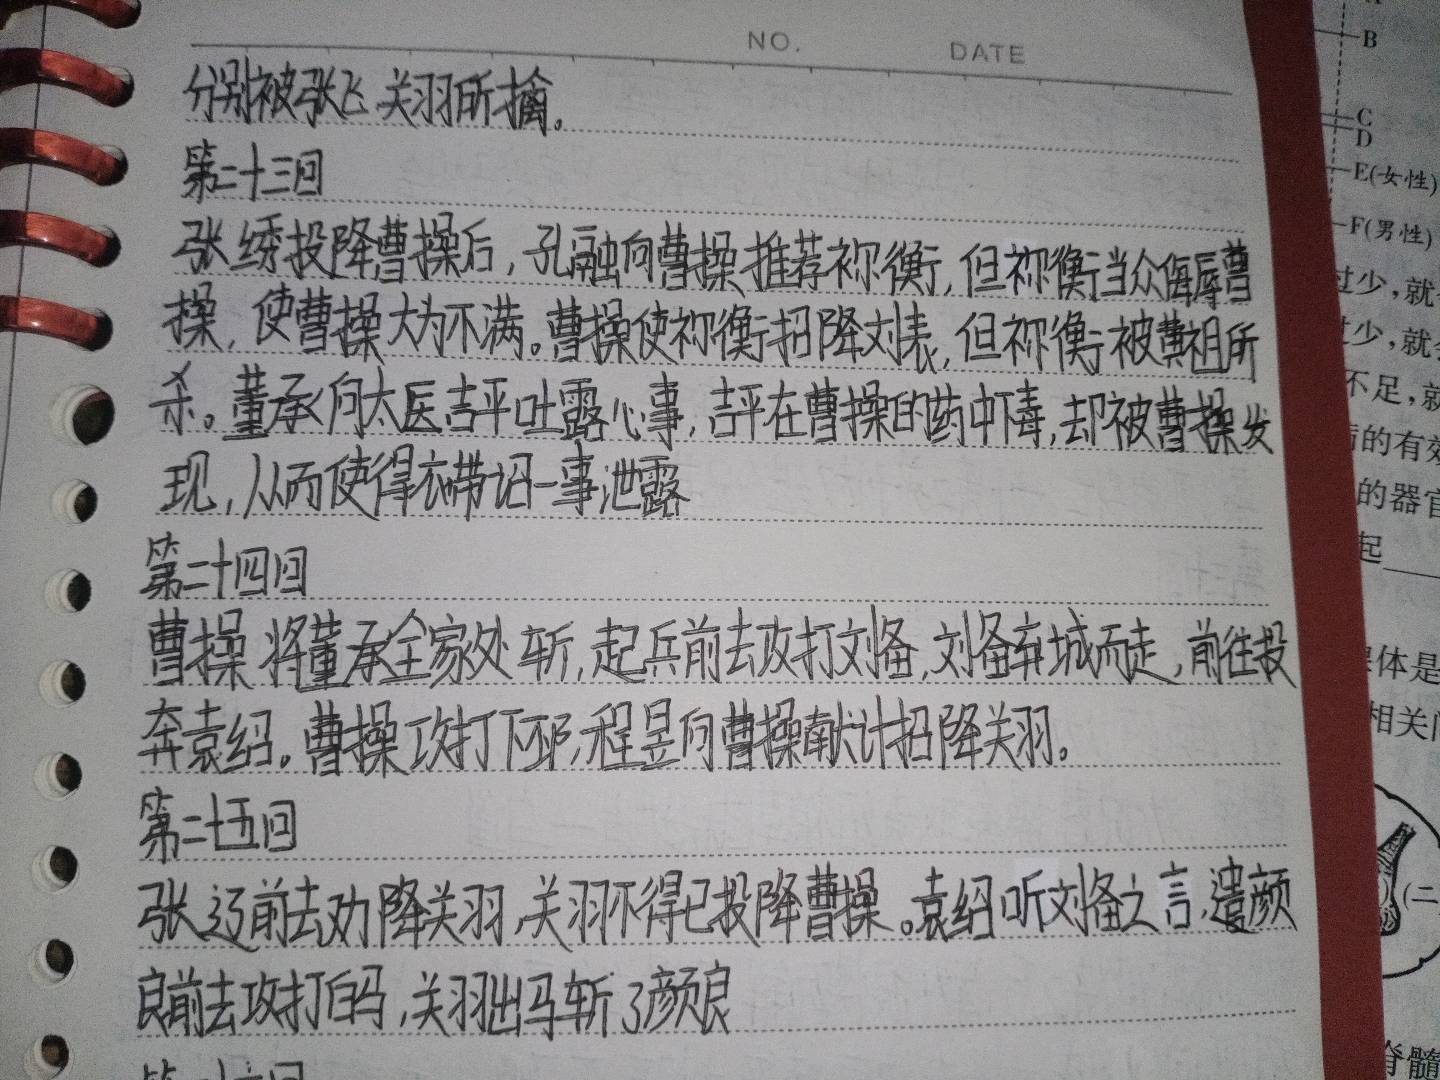 NO. DATE
分别被张飞关羽所擒。
第二十三回
张绣投降曹操后，孔融向曹操推荐祢衡，但祢衡当众侮辱曹
操，使曹操大为不满。曹操使祢衡招降刘表，但祢衡被黄祖所
杀。董承向太医吉平吐露心事，吉平在曹操的药中下毒，却被曹操发
现，从而使得衣带诏一事泄露
第二十四回
曹操将董承全家处斩，起兵前去攻打刘备，刘备弃城而走，前往投
奔袁绍。曹操攻打下邳，程昱向曹操献计招降关羽。
第二十五回
张辽前去劝降关羽，关羽不得已投降曹操。袁绍听刘备之言，遣颜
良前去攻打白马，关羽出马斩了颜良
B
C
D
E(女性)
F(男性)
过少，就
过少，就会
不足，就
的有效
的器官
起
体是
相关
(二
脊髓